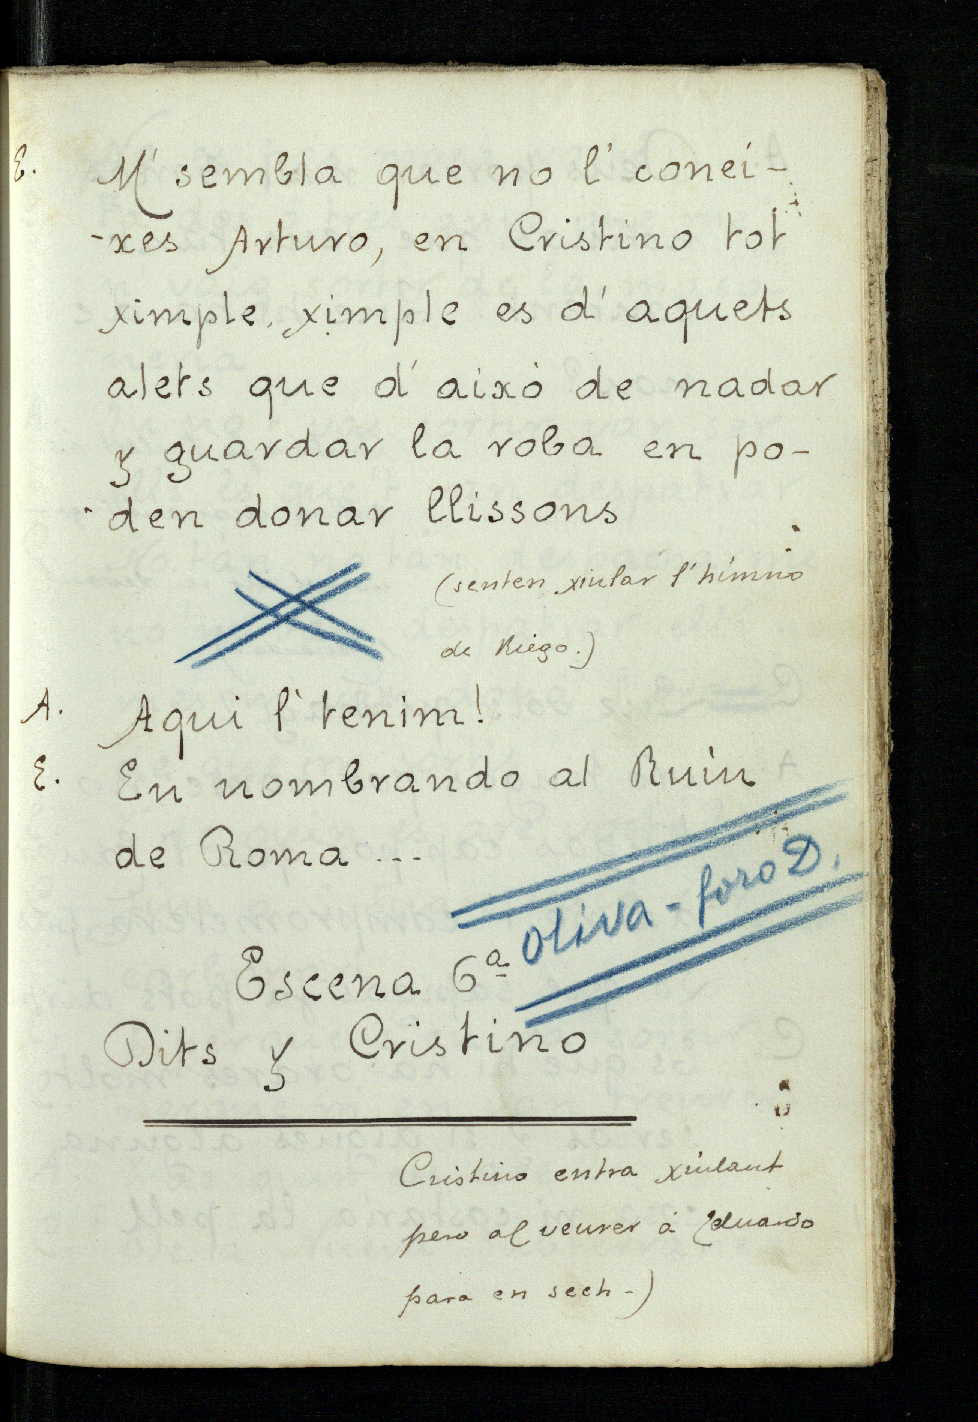 E. M' sembla que no l' conei-
-xes Arturo, en Cristino tot
ximple, ximple es d' aquets
alets que d' aixó de nadar
y guardar la roba en po-
den donar llissons
(senten xiular l' himno
de Riego.)
A. Aqui l' tenim!
E. En nombrando al Ruin
de Roma ...
Oliva - foro D.
Escena 6ª
Dits y Cristino
Cristino entra xiulant
pero al veurer á Eduardo
para en sech -)